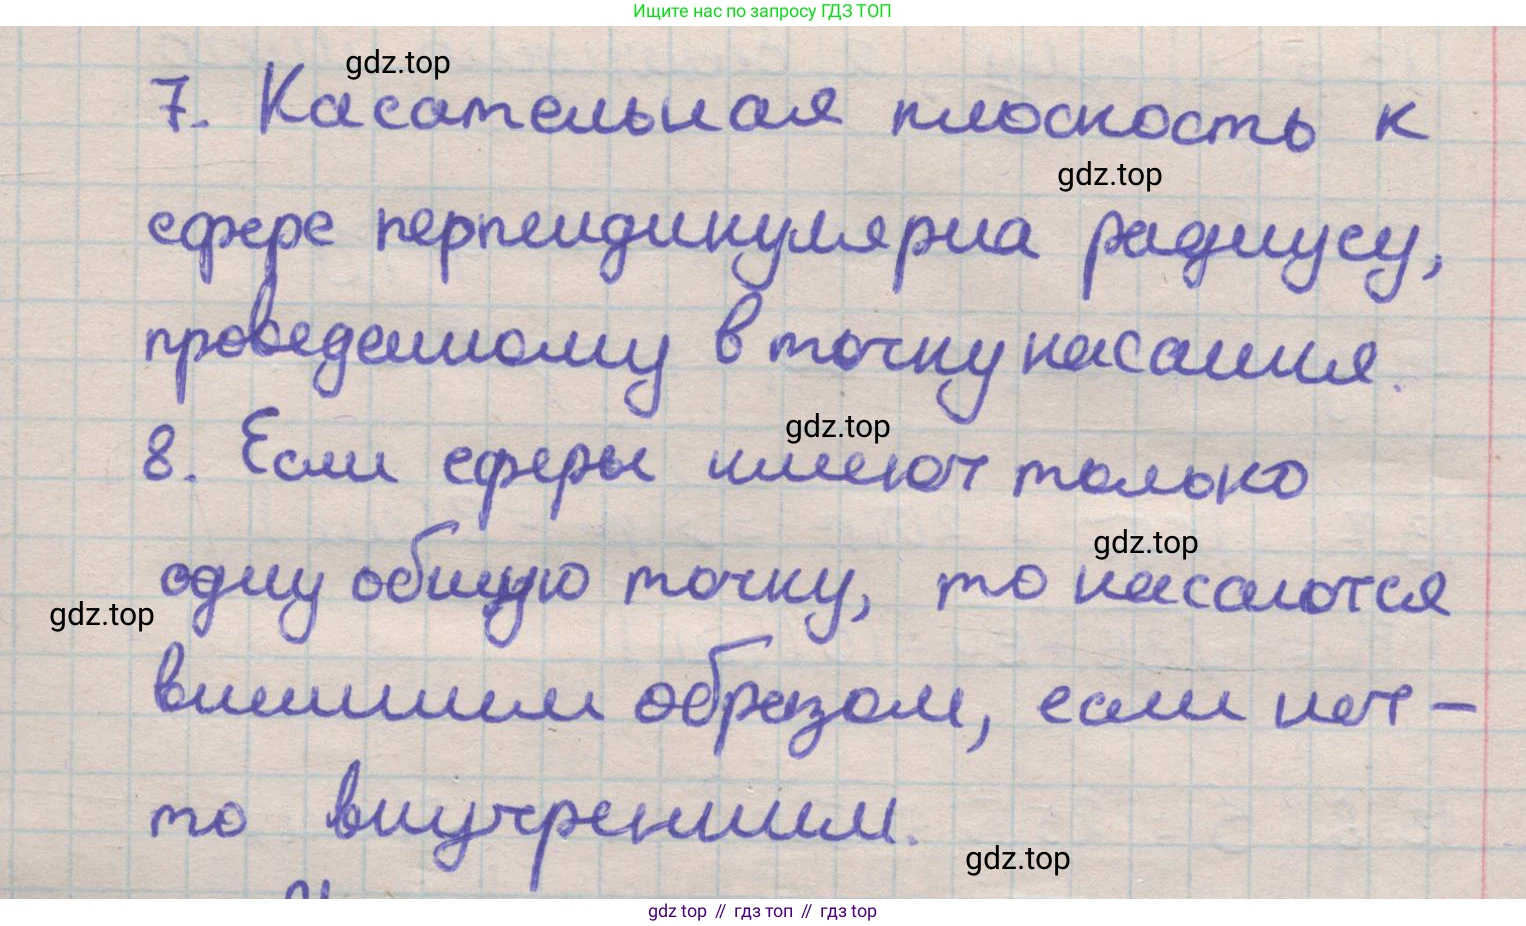 Ищите нас по запросу ГДЗ ТОП
gdz.top
7. Касательная плоскость к
gdz.top
сфере перпендикулярна радиусу,
проведенному в точку касания.
gdz.top
8. Если сферы имеют только
gdz.top
одну общую точку, то касаются
gdz.top
внешним образом, если нет –
то внутренним.
gdz.top
gdz top // гдз топ // гдз top